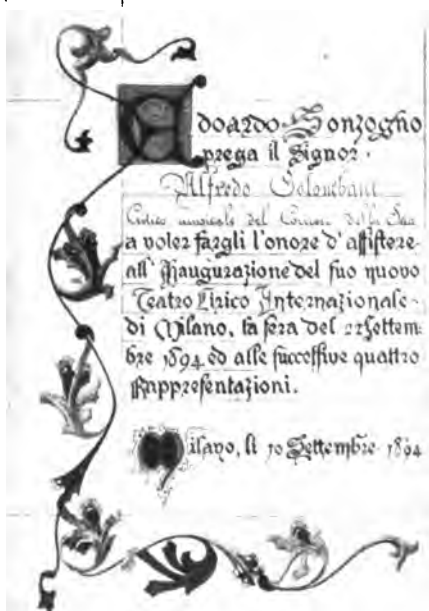 Edoardo Sonzogno
prega il Signor.
Alfredo Colombani
Critico musicale del Corriere della Sera
a voler fargli l'onore d'assistere
all'Inaugurazione del suo nuovo
Teatro Lirico Internazionale
di Milano, la sera del 22 Settem-
bre 1894 ed alle successive quattro
Rappresentazioni.
Milano, li 10 Settembre 1894